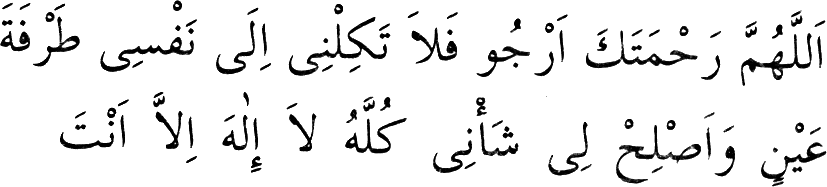 اَللَّهُمَّ رَحْمَتَكَ اَرْجُو فَلاَ تَكِلْنِى اِلَى نَفْسِى طَرْفَةَ
عَيْنٍ وَاَصْلِحْ لِى شَأْنِى كُلَّهُ لاَ إِلٰهَ اِلاَّ اَنْتَ